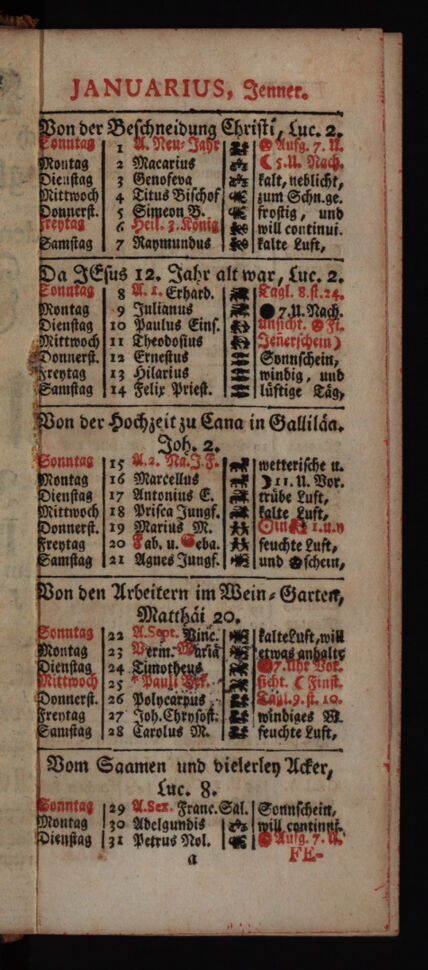 JANUARIUS, Jenner.
Von der Beschneidung Christi, Luc. 2.
Sonntag 1 A. Neu-Jahr Aufg. 7. U.
Montag 2 Macarius 5. U. Nach.
Dienstag 3 Genofeva kalt, neblicht,
Mittwoch 4 Titus Bischof zum Schn. ge.
Donnerst. 5 Simeon B. frostig, und
Freytag 6 Heil. 3. König will continui.
Samstag 7 Raymundus kalte Luft,
Da JEsus 12. Jahr alt war, Luc. 2.
Sonntag 8 A. 1. Erhard. Tagl. 8. st. 24.
Montag 9 Julianus 7. U. Nach.
Dienstag 10 Paulus Eins. unsicht. Fi.
Mittwoch 11 Theodosius Jenerschein)
Donnerst. 12 Ernestus Sonnschein,
Freytag 13 Hilarius windig, und
Samstag 14 Felix Priest. lüftige Täg,
Von der Hochzeit zu Cana in Galliläa.
Joh. 2.
Sonntag 15 A. 2. Na. J. F. wetterische u.
Montag 16 Marcellus 11. U. Vor.
Dienstag 17 Antonius E. trübe Luft,
Mittwoch 18 Prisca Jungf. kalte Luft,
Donnerst. 19 Marius M. in 1. u. n
Freytag 20 Fab. u. Seba. feuchte Luft,
Samstag 21 Agnes Jungf. und schein,
Von den Arbeitern im Wein-Garten,
Matthäi 20.
Sonntag 22 A. Sept. Vinc. kalte Luft, will
Montag 23 Verm. Mariä etwas anhalte
Dienstag 24 Timotheus 7. Uhr Vor.
Mittwoch 25 * Pauli Bek. sicht. Finst.
Donnerst. 26 Polycarpus Tagl. 9. st. 10.
Freytag 27 Joh. Chrysost. windiges W.
Samstag 28 Carolus M. feuchte Luft,
Vom Saamen und vielerley Acker,
Luc. 8.
Sonntag 29 A. Sex. Franc. Sal. Sonnschein,
Montag 30 Adelgundis will continui.
Dienstag 31 Petrus Nol. Aufg. 7. U.
a FE-